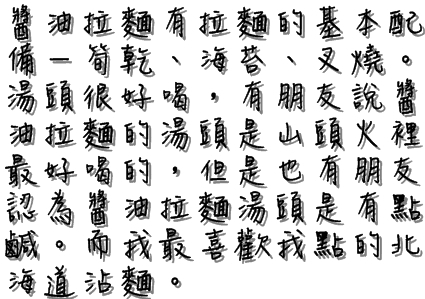 醬油拉麵有拉麵的基本配
備—筍乾、海苔、叉燒。
湯頭很好喝，有朋友說醬
油拉麵的湯頭是山頭火裡
最好喝的，但是也有朋友
認為醬油拉麵湯頭是有點
鹹。而我最喜歡我點的北
海道沾麵。